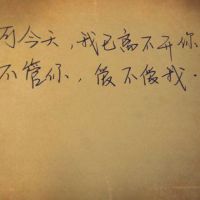 可今天，我已离不开你
不管你，不我.